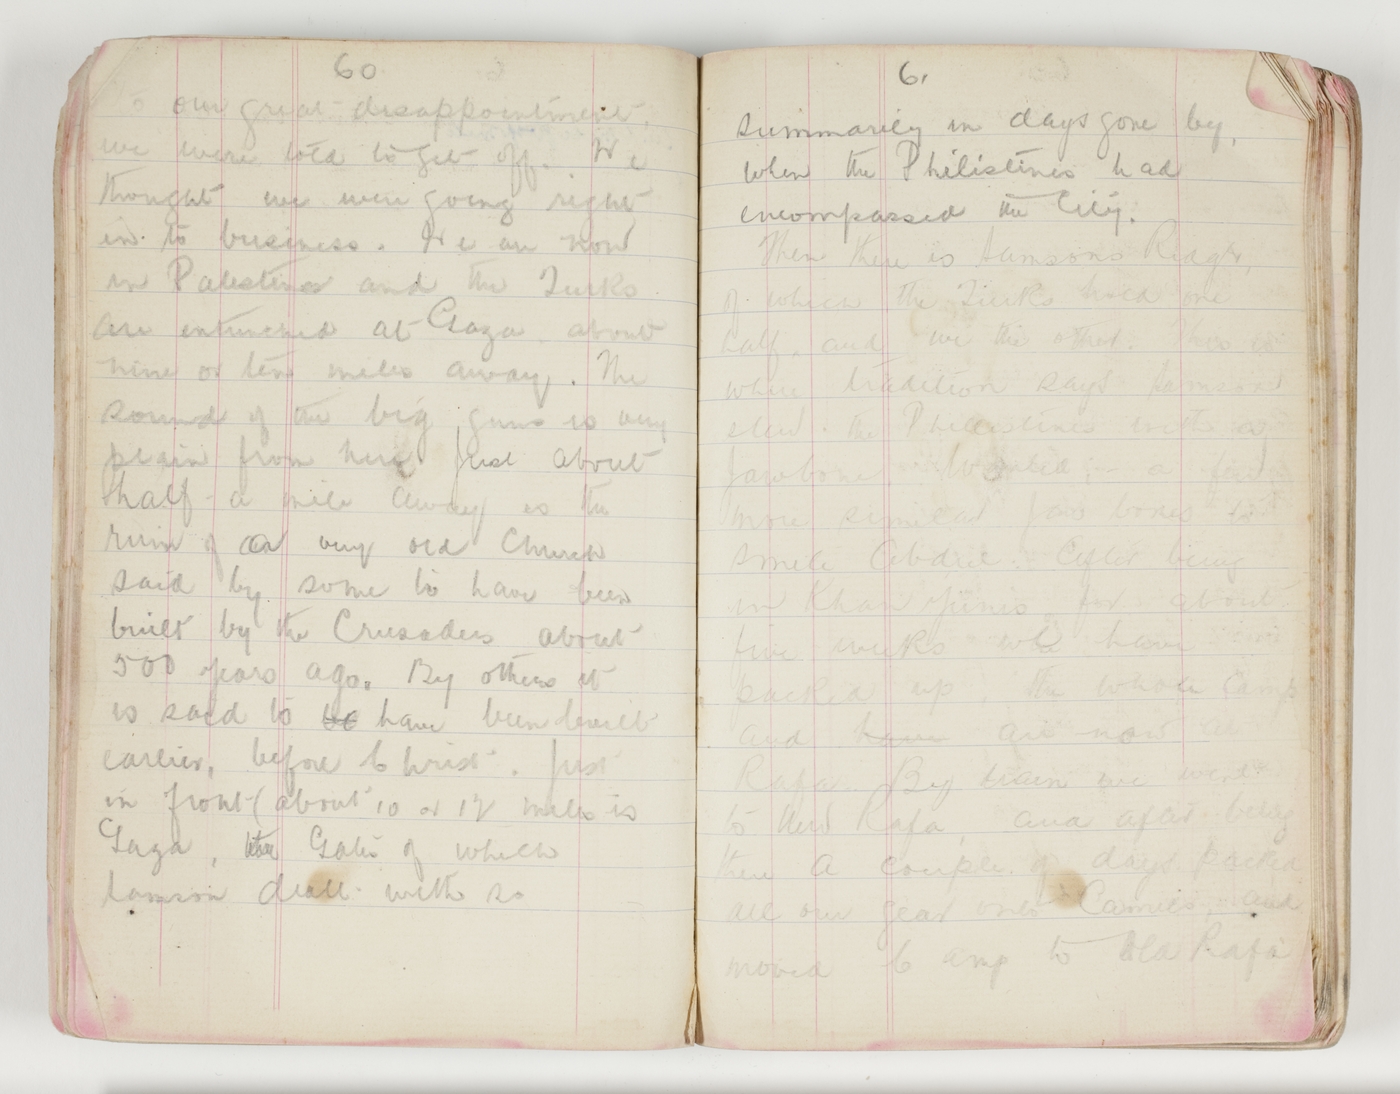 60
To our great disappointment,
we were told to get off. We
thought we were going right
in to business. We are now
in Palestine and the Turks
are entrenched at Gaza about
nine or ten miles away. The
sound of the big guns is very
plain from here. Just about
half a mile away is the
ruin of a very old Church
said by some to have been
built by the Crusaders about
500 years ago. By others it
is said to be have been built
earlier, before Christ. Just
in front (about 10 or 12 miles is
Gaza, the Gates of which
Samson dealt with so
61
summarily in days gone by,
when the Philistines had
encompassed the City.
Then there is Samsons Ridge,
of which the Turks hold one
half, and we the other. This is
where tradition says Samson
slew the Philistines with a
jawbone. Wanted:- a few
more similar jaw bones to
smite Abdul. After being
in Khan Yunis for about
five weeks we have
packed up, the whole Camp
and have are now at
Rafa. By train we went
to New Rafa, and after being
there a couple of days packed
all our gear onto Camels, and
moved Camp to Old Rafa